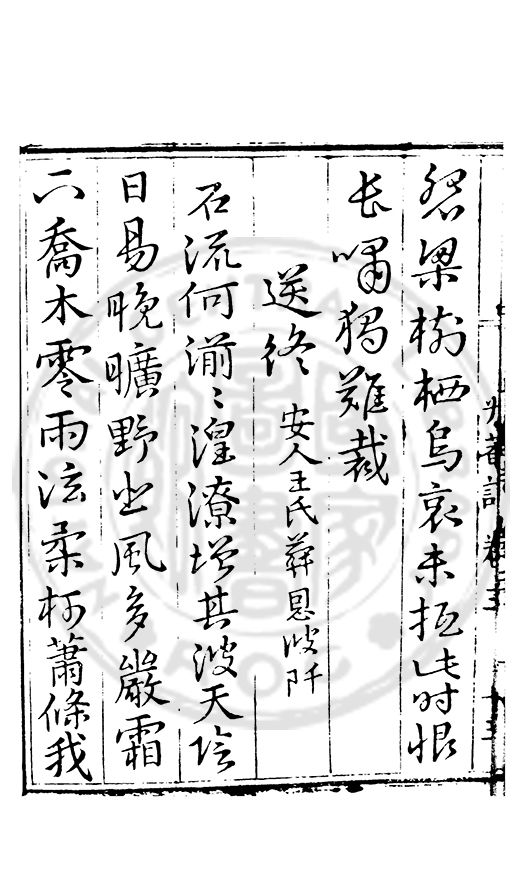 梁樹栖烏哀未抵此时恨
長嘯獨難裁
送終 安人王氏葬恩波阡
石流何湔〻湟潦增其波天陰
日易晚曠野北風多嚴霜
下喬木零雨泫柔柯蕭條我